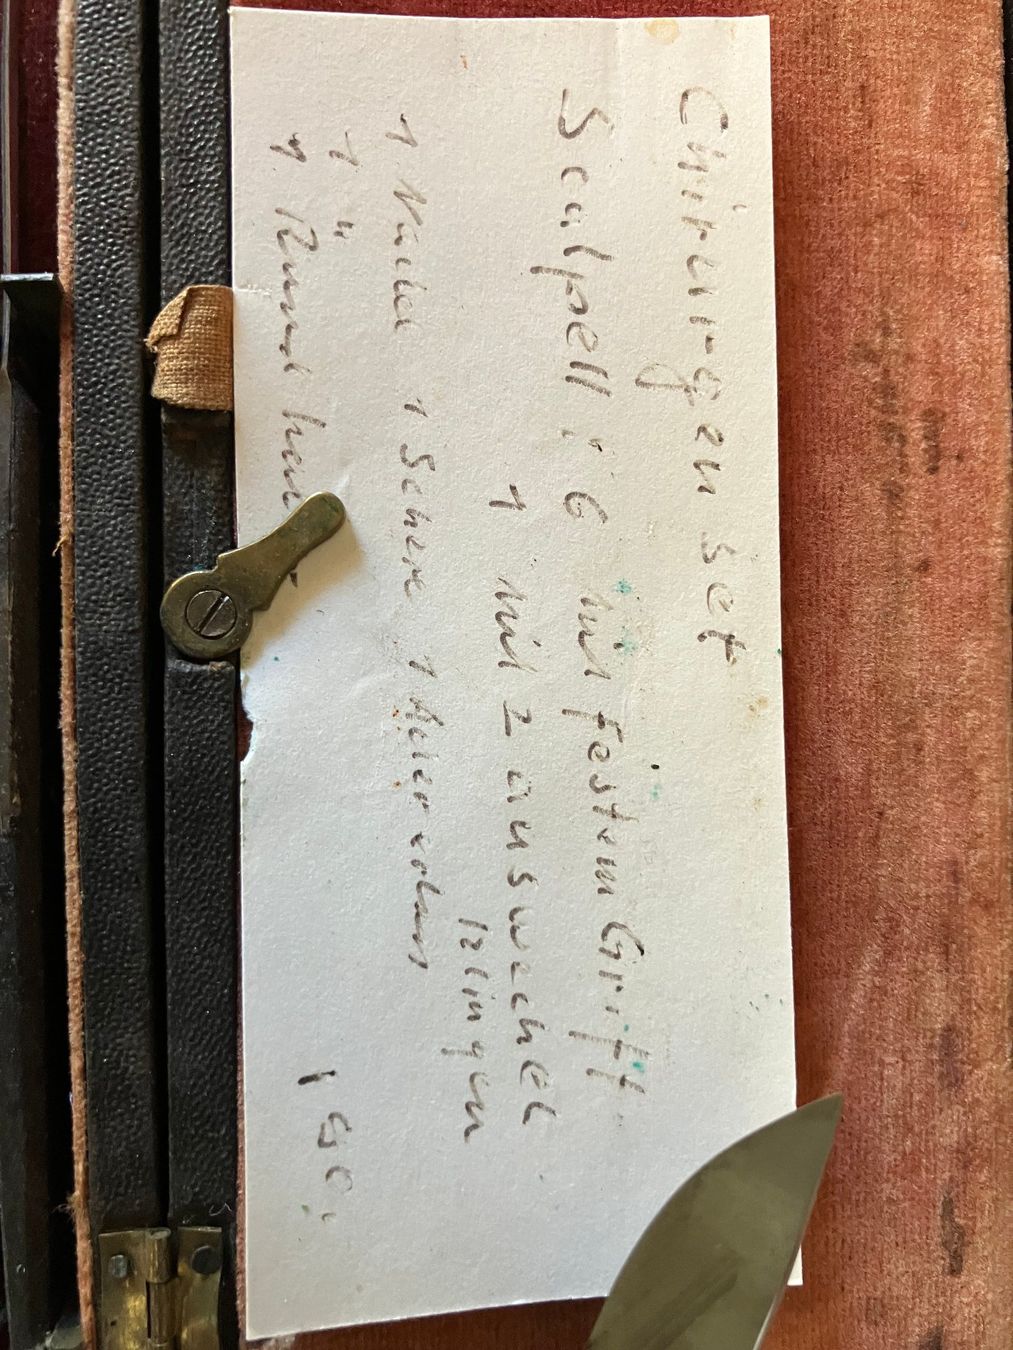 Chirurgen set
Scalpell : 6 mit festem Griff.
1 mit 2 auswechsel
klingen
1 Nadel 1 Schere 1
1 "
1 Rund